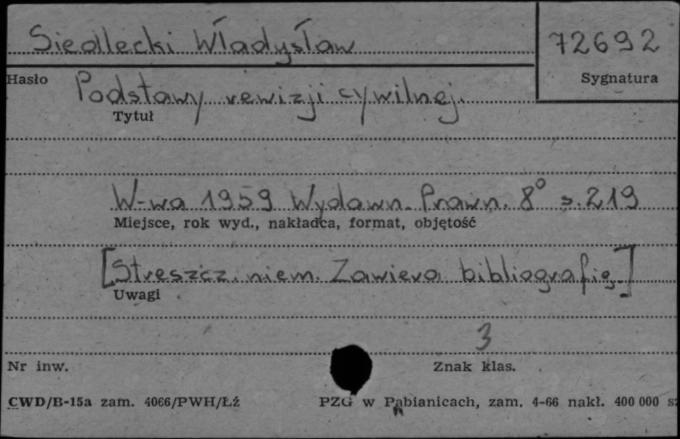 Siedlecki Władysław 72692
Hasło Sygnatura
Podstawy rewizji cywilnej.
Tytuł
W-wa 1959 Wydawn. Prawn. 8° s. 219
Miejsce, rok wyd., nakładca, format, objętość
[Streszcz. niem. Zawiera bibliografię]
Uwagi
3
Nr inw. Znak klas.
CWD/B-15a zam. 4066/PWH/Łź PZG w Pabianicach, zam. 4-66 nakł. 400 000